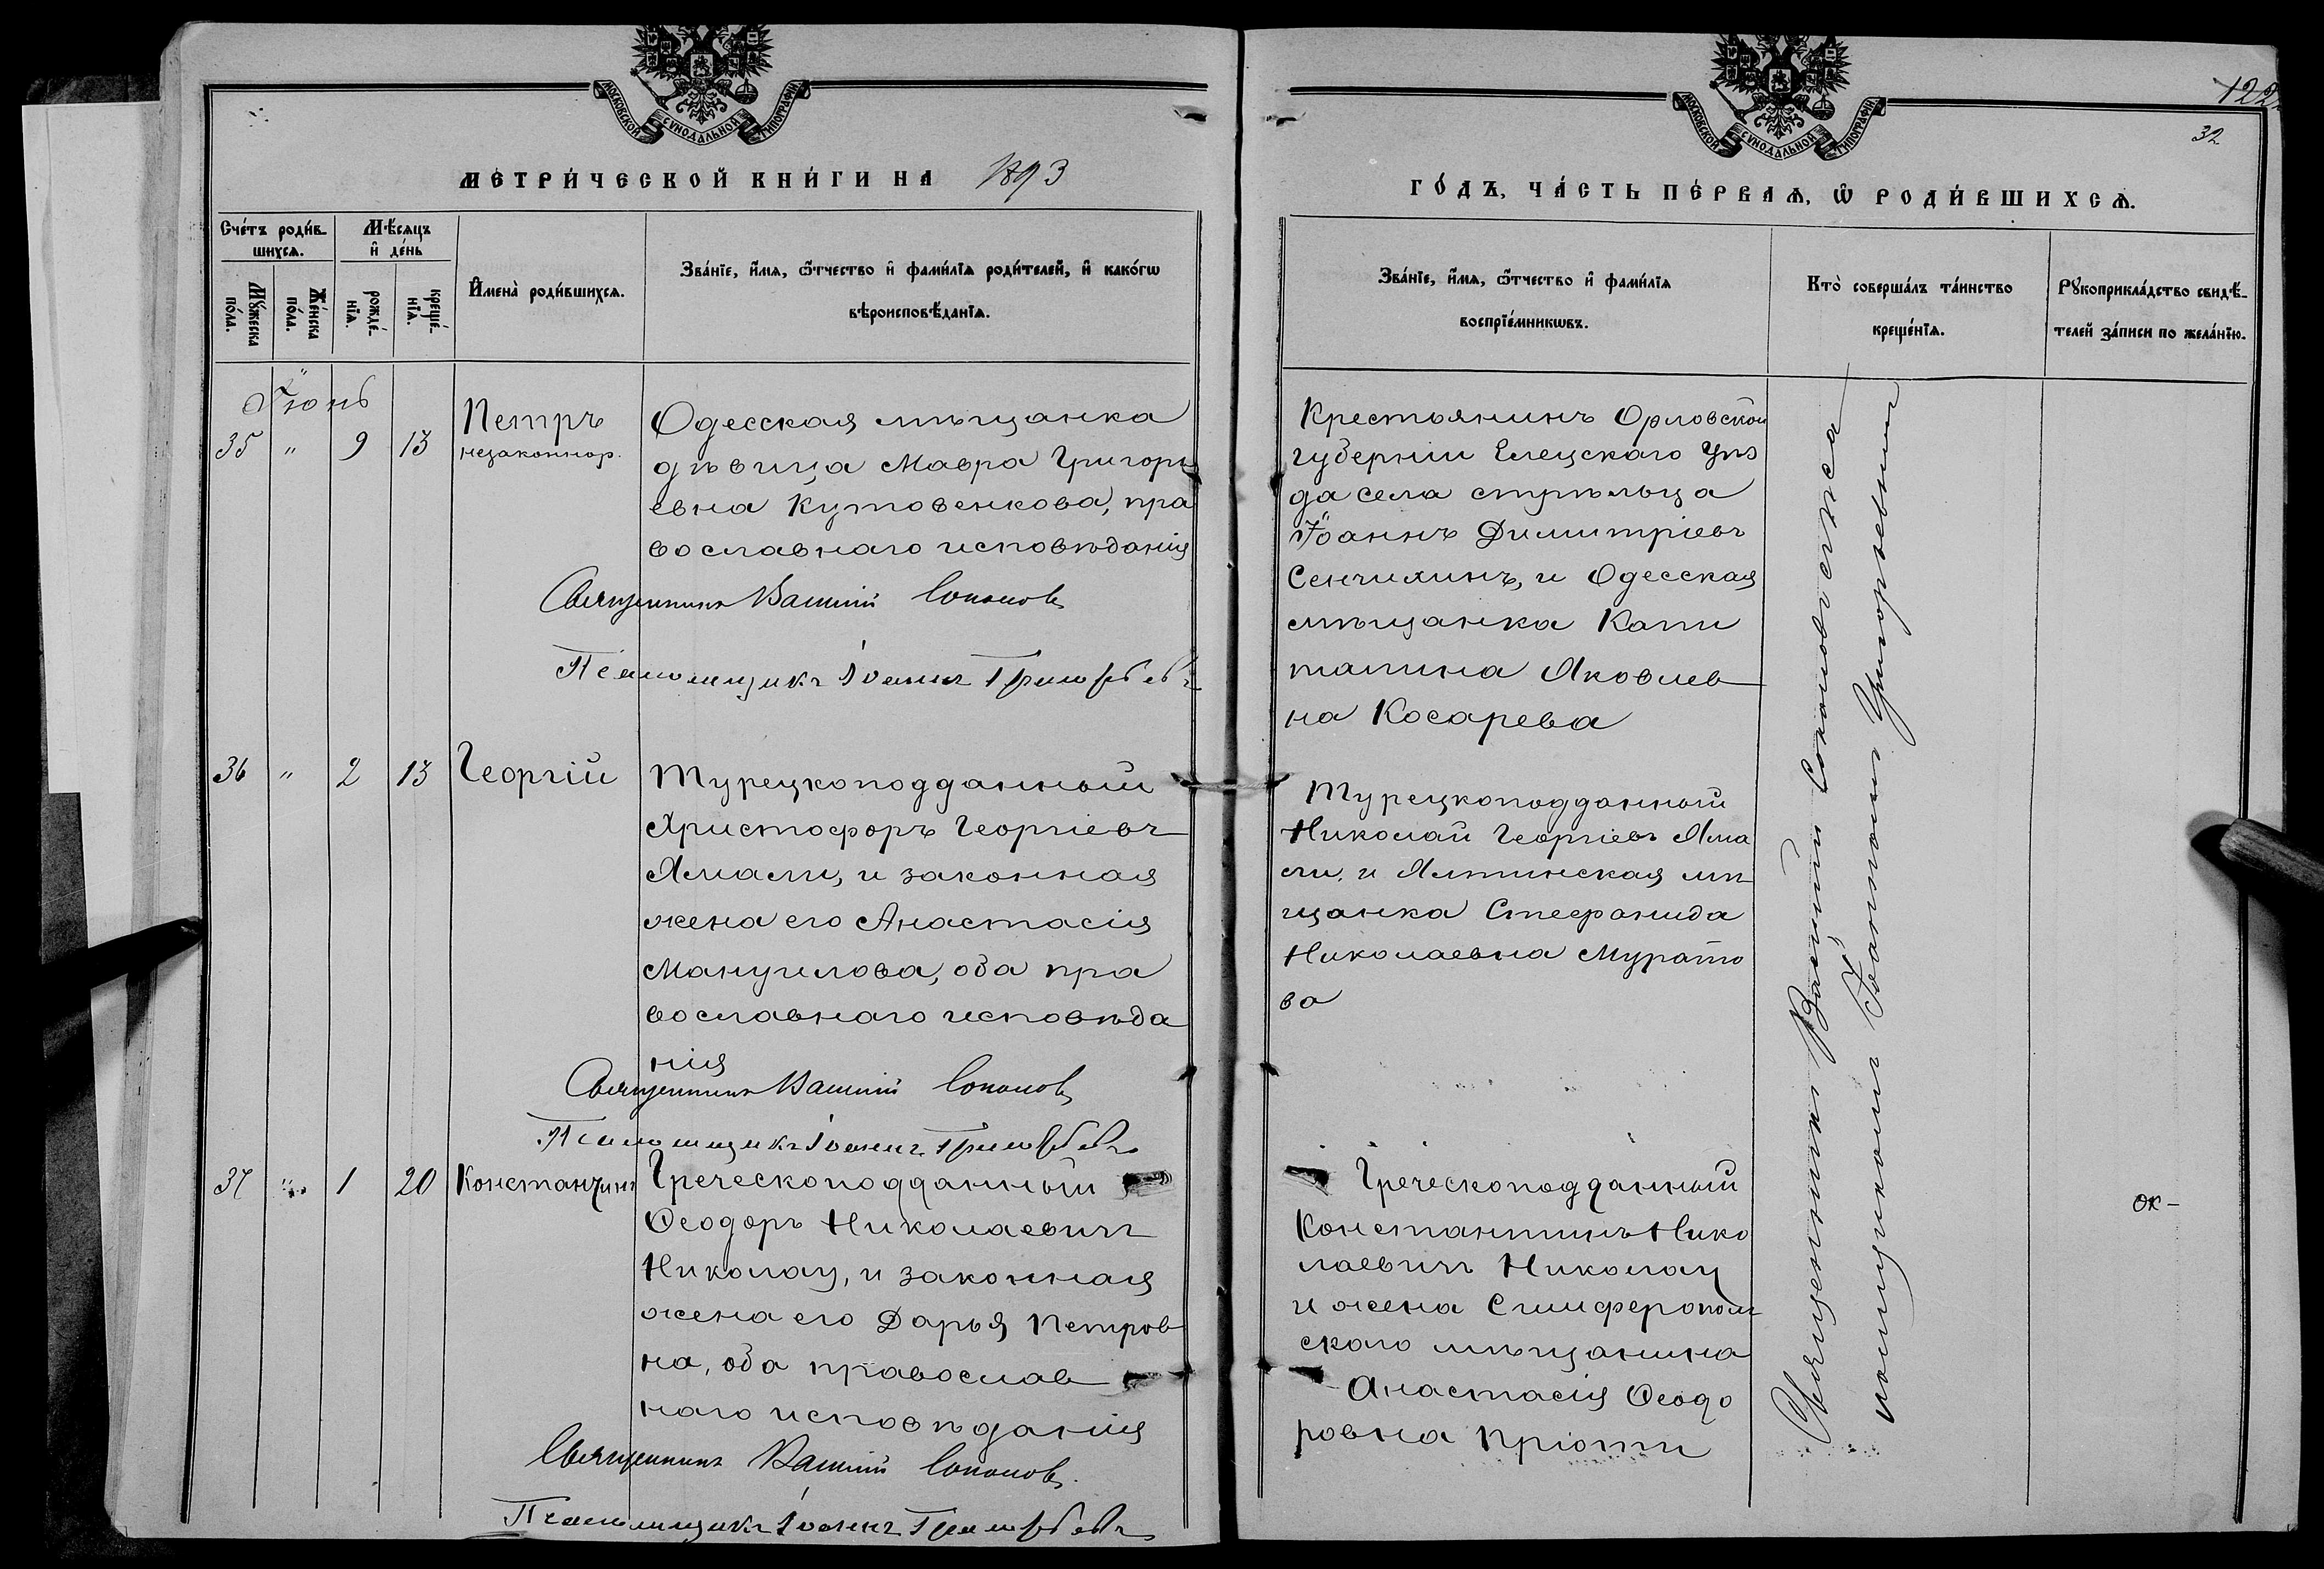 МОСКОВСКОЙ СѴНОДАЛЬНОЙ ТИПОГРАФІИ
МЕТРИ́ЧЕСКОЙ КНИ́ГИ НА 1893
Сче́тъ роди́в-
шихсѧ.
Мѣ́сѧцъ
и҆ де́нь
Мꙋ́жеска
по́ла.
Же́нска
по́ла.
рожде́-
нїѧ.
креще́-
нїѧ.
И҆мена̀ роди́вшихсѧ.
Зва́нїе, и҆́мѧ, ѻ҆́тчество и҆ фами́лїѧ роди́телей, и҆ како́гѡ
вѣроисповѣ́данїѧ.
Іюнь
35 " 9 13
Петръ
незаконнор.
Одесская мѣщанка
дѣвица Мавра Григорь
евна Кутовенкова, пра
вославнаго исповѣданія
Священникъ Василій Соколовъ
Псаломщикъ Іоаннъ Григорьевъ
36 " 2 13 Георгій
Турецкоподданный
Христофоръ Георгіевъ
Ялмали, и законная
жена его Анастасія
Мануилова, оба пра
вославнаго исповѣда
нія
Священникъ Василій Соколовъ
Псаломщикъ Іоаннъ Григорьевъ
37 " 1 20 Константинъ
Греческоподданный
Ѳеодоръ Николаевичъ
Николау, и законная
жена его Дарья Петров
на, оба православ
наго исповѣданія
Священникъ Василій Соколовъ.
Псаломщикъ Іоаннъ Григорьевъ
122
32
МОСКОВСКОЙ СѴНОДАЛЬНОЙ ТИПОГРАФІИ
ГО́ДЪ, ЧА́СТЬ ПЕ́РВАѦ, Ѡ҆ РОДИ́ВШИХСѦ.
Зва́нїе, и҆́мѧ, ѻ҆́тчество и҆ фами́лїѧ
воспрїе́мникѡвъ.
Кто̀ соверша́лъ та́инство
креще́нїѧ.
Рꙋкоприкла́дство свидѣ́-
телей за́писи по жела́нїю.
Крестьянинъ Орловской
губерніи Елецскаго Уѣз
да села стрѣльца
Іоаннъ Димитріевъ
Сенчихинъ, и Одесская
мѣщанка Капи
талина Яковлев
на Косарева
Турецкоподданный
Николай Георгіевъ Ялма
ли, и Ялтинская мѣ
щанка Стефанида
Николаевна Мурато
ва
Греческоподданный
Константинъ Нико
лаевичъ Николау
и жена Симферополь
скаго мѣщанина
Анастасія Ѳеодо
ровна Пріотти
Священникъ Василій Соколовъ съ пса
ломщикомъ Іоанномъ Григорьевымъ
ок-